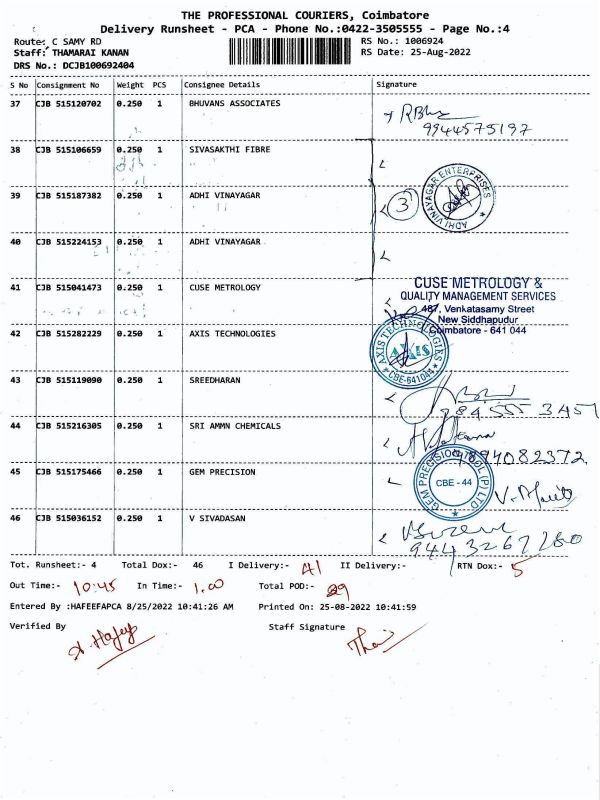 THE PROFESSIONAL COURIERS, Coimbatore
Delivery Runsheet - PCA - Phone No.:0422-3505555 - Page No.:4
Route: C SAMY RD RS No.: 1006924
Staff: THAMARAI KANAN RS Date: 25-Aug-2022
DRS No.: DCJB100692404
S No Consignment No Weight PCS Consignee Details Signature
37 CJB 515120702 0.250 1 BHUVANS ASSOCIATES
9944575197
38 CJB 515106659 0.250 1 SIVASAKTHI FIBRE
39 CJB 515187382 0.250 1 ADHI VINAYAGAR 3 ADHI VINAYAGAR ENTERPRISES
40 CJB 515224153 0.250 1 ADHI VINAYAGAR
41 CJB 515041473 0.250 1 CUSE METROLOGY CUSE METROLOGY &
QUALITY MANAGEMENT SERVICES
487, Venkatasamy Street
New Siddhapudur
Coimbatore - 641 044
42 CJB 515282229 0.250 1 AXIS TECHNOLOGIES AXIS TECHNOLOGIES AXIS CBE-641044
43 CJB 515119090 0.250 1 SREEDHARAN
44 CJB 515216305 0.250 1 SRI AMMN CHEMICALS
9894082372
45 CJB 515175466 0.250 1 GEM PRECISION GEM PRECISION TOOL (P) LTD CBE - 44
46 CJB 515036152 0.250 1 V SIVADASAN
9443267280
Tot. Runsheet:- 4 Total Dox:- 46 I Delivery:- 41 II Delivery:- RTN Dox:- 5
Out Time:- 10:45 In Time:- 1.00 Total POD:- 29
Entered By :HAFEEFAPCA 8/25/2022 10:41:26 AM Printed On: 25-08-2022 10:41:59
Verified By Staff Signature